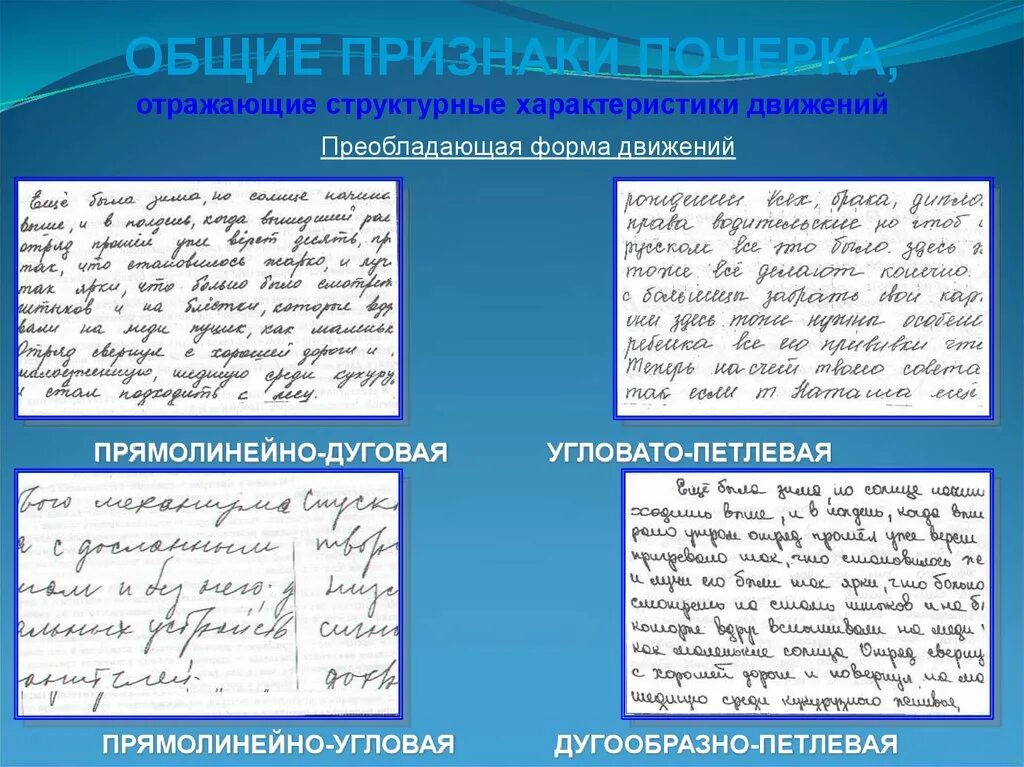 ОБЩИЕ ПРИЗНАКИ ПОЧЕРКА,
отражающие структурные характеристики движений
Преобладающая форма движений
Ещё была зима, но солнце начина
выше, и в полдень, когда вышедший
отряд прошёл уже вёрст десять, пр
так, что становилось жарко, и луч
так ярки, что больно было смотрит
штыков и на блёстки, которые вдр
вали на меди пушек, как маленьк
Отряд свернул с хорошей дороги и
малоезженную, шедшую среди кукуру
и стал подходить к лесу.
рождении всех, брака, дипло
права водительские но чтоб
русском все это было. Здесь
тоже всё делают конечно.
с больницы забрать свои кар
они здесь тоже нужны особен
ребенка все его прививки
Теперь насчёт твоего совета
так если т Наташа ещё
ПРЯМОЛИНЕЙНО-ДУГОВАЯ
УГЛОВАТО-ПЕТЛЕВАЯ
бого механизма Спуск
с досланным твор
и без него; д низ
альных устройств сигн
дохв
Ещё была зима, но солнце начин
ходило выше, и в полдень, когда выш
рано утром отряд прошёл уже верст
пригревало так, что становилось же
и лучи его были так ярки, что больно
смотреть на сталь штыков и на бл
которые вдруг вспыхивали на меди
как маленькие солнца Отряд сверну
с хорошей дороги и повернул на ма
шедшую среди кукурузного
ПРЯМОЛИНЕЙНО-УГЛОВАЯ
ДУГООБРАЗНО-ПЕТЛЕВАЯ